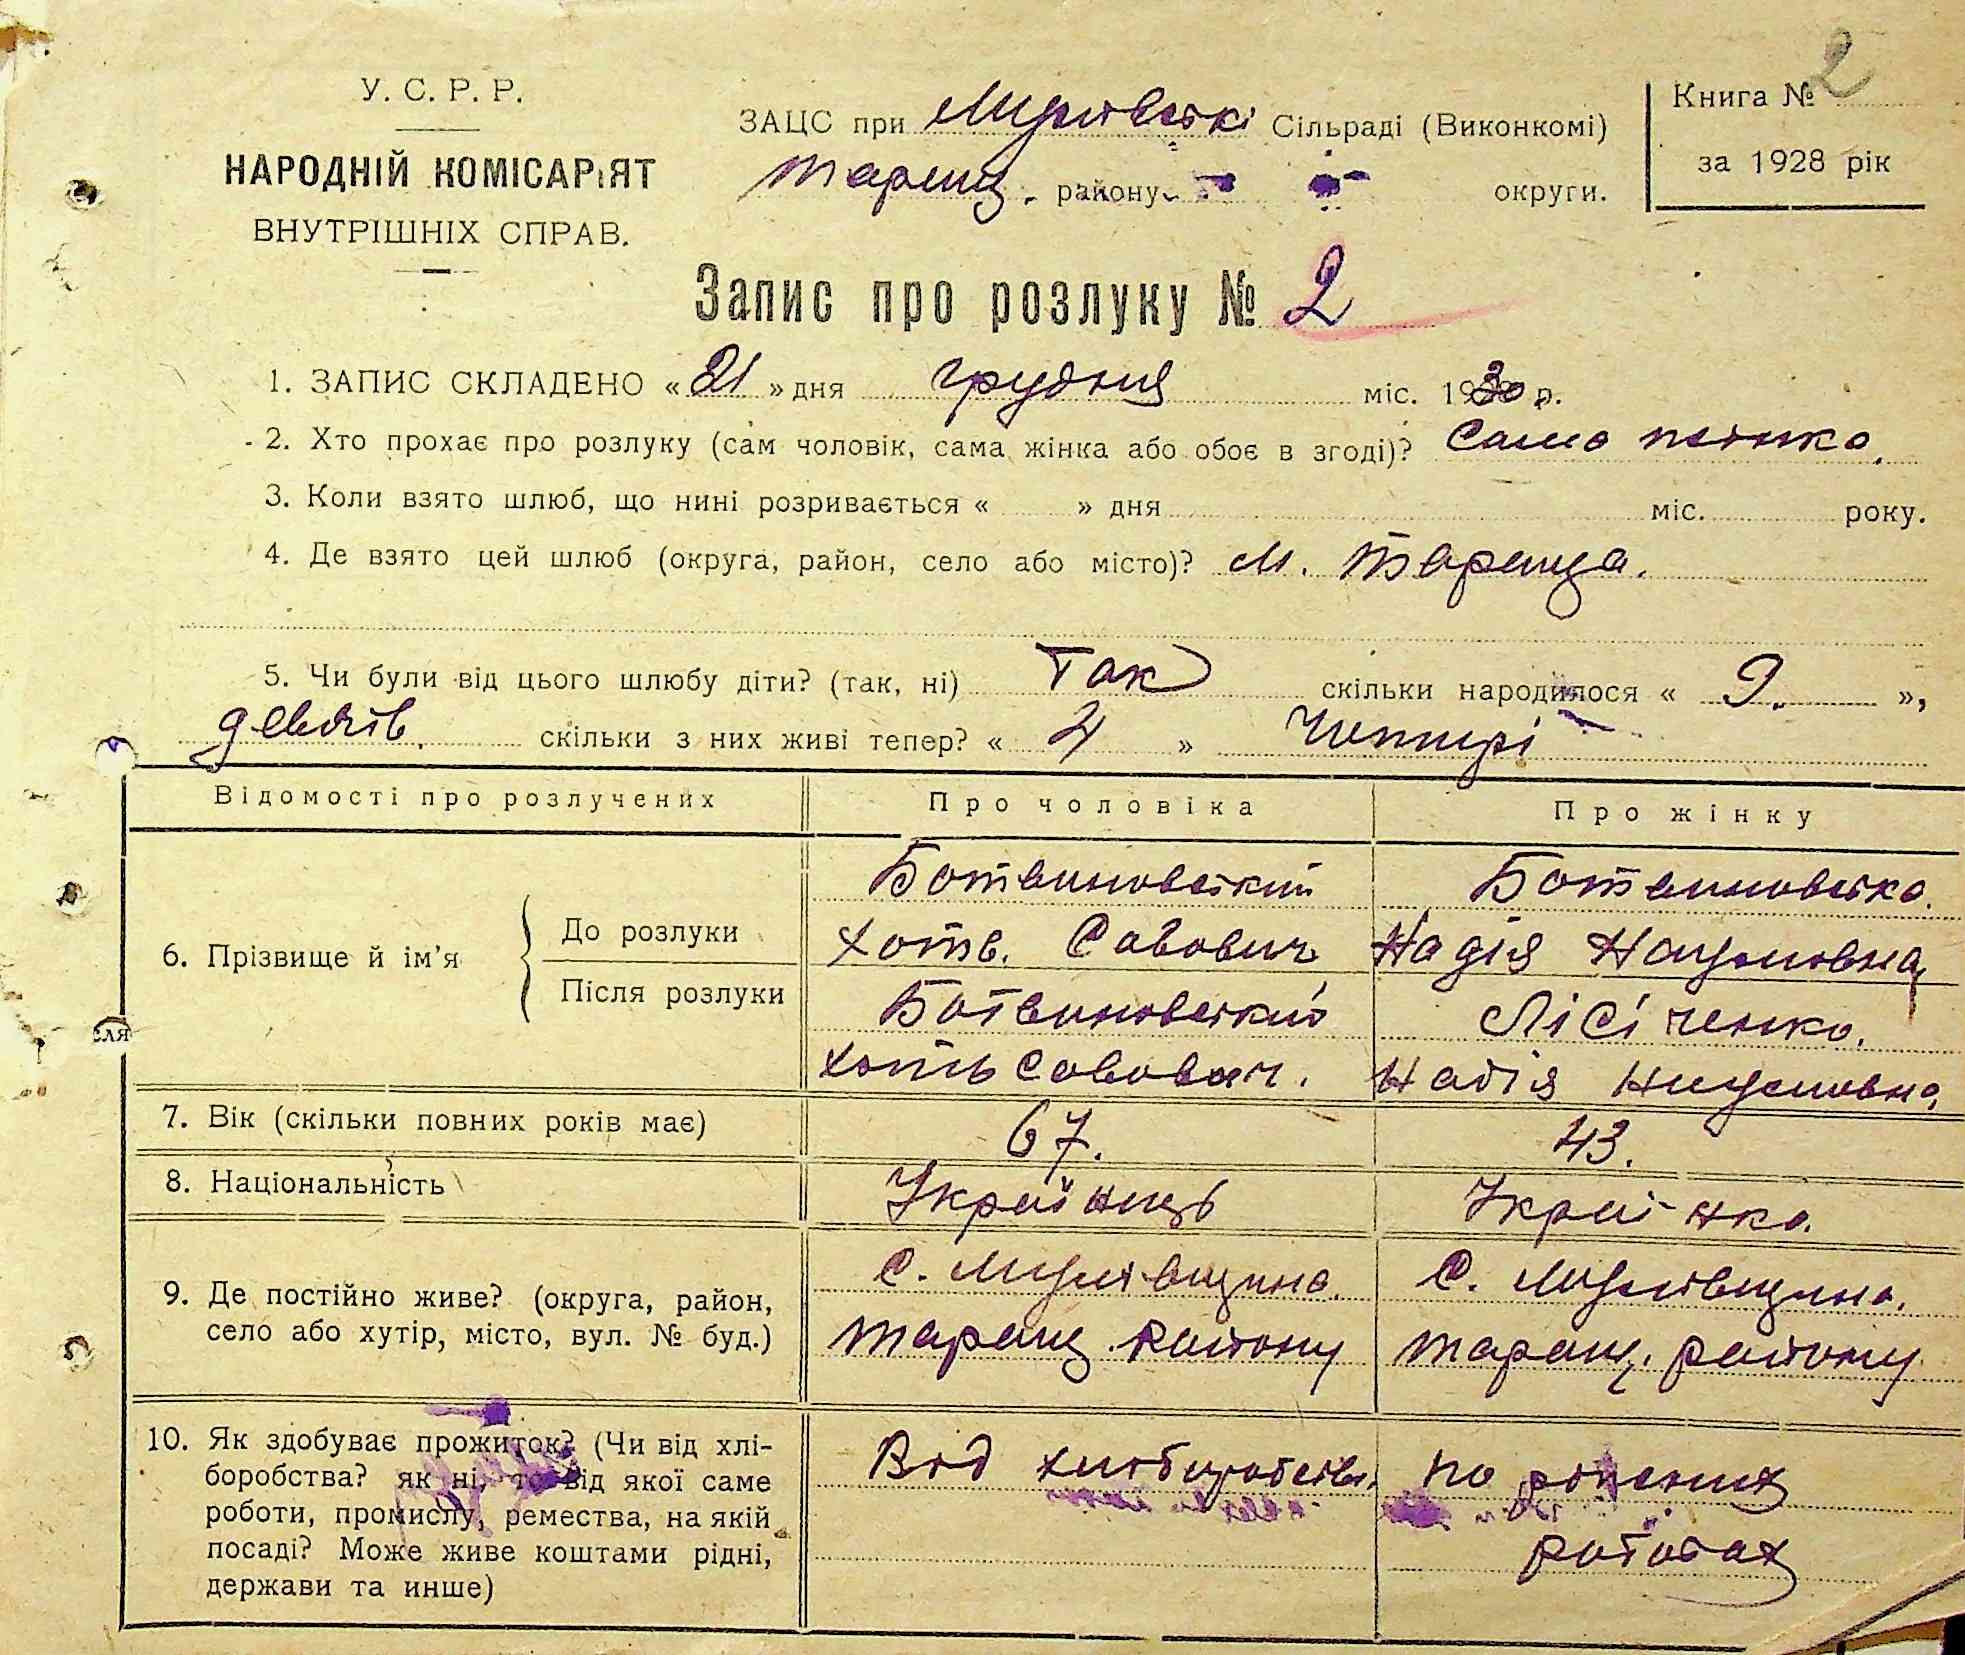 У. С. Р. Р.
НАРОДНІЙ КОМІСАРІЯТ
ВНУТРІШНІХ СПРАВ.
ЗАЦС при Лисівські Сільраді (Виконкомі)
Таращ. району округи.
Книга № 2
за 1928 рік
Запис про розлуку № 2
1. ЗАПИС СКЛАДЕНО « 21 » дня грудня міс. 1930 р.
2. Хто прохає про розлуку (сам чоловік, сама жінка або обоє в згоді)? Сама
3. Коли взято шлюб, що нині розривається « » дня міс. року.
4. Де взято цей шлюб (округа, район, село або місто)? м. Тараща.
5. Чи були від цього шлюбу діти? (так, ні) Так скільки народилося « 9. »,
девять. скільки з них живі тепер? « 4 » Чотирі
Відомості про розлучених Про чоловіка Про жінку
6. Прізвище й ім'я
До розлуки
Ботвиновський Ботвиновська.
Хоть. Савович Надія Наумовна
Після розлуки
Ботвиновський Лісіченко.
Хоть Савович. Надія Наумовна
7. Вік (скільки повних років має) 67. 43.
8. Національність Українець Українка.
9. Де постійно живе? (округа, район, село або хутір, місто, вул. № буд.)
с. с.
Таращ. Району Таращ. району
10. Як здобуває прожиток? (Чи від хлі-
боробства? як ні, то від якої саме
роботи, промислу, ремества, на якій
посаді? Може живе коштами рідні,
держави та инше)
Від хліборобства. по
роботах